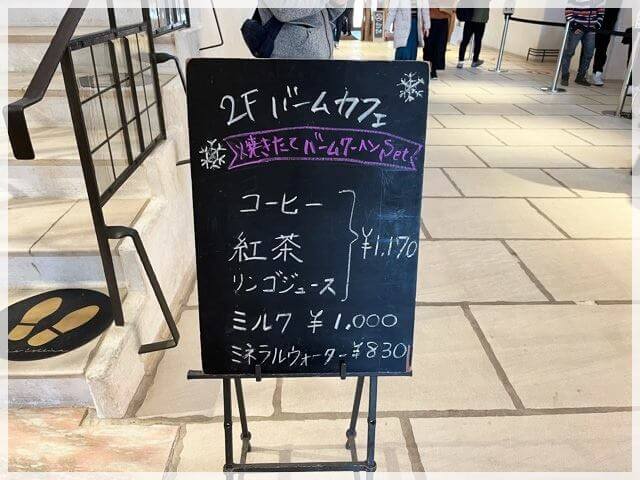 2F バームカフェ
焼きたてバームクーヘンSet
コーヒー
紅茶 ¥1,170
リンゴジュース
ミルク ¥1,000
ミネラルウォーター¥830